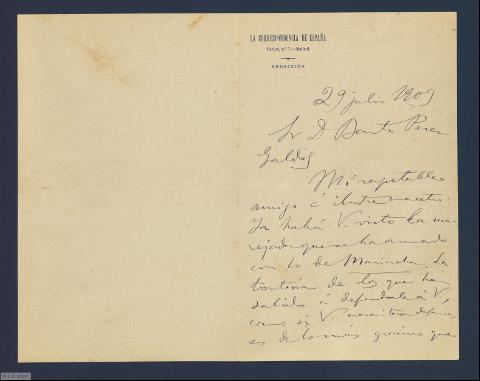 LA CORRESPONDENCIA DE ESPAÑA
Factor, n.º 7.—Madrid
REDACCIÓN
29 julio 1903.
Sr D Benito Perez
Galdós
Mi respetable
amigo é ilustre maestro:
Ya habrá V. visto la ma-
rejada que se ha armado
con lo de Marineda. La
tontería de los que han
salido á defenderle á V,
como si V. necesitara defensa,
es de lo más gracioso que